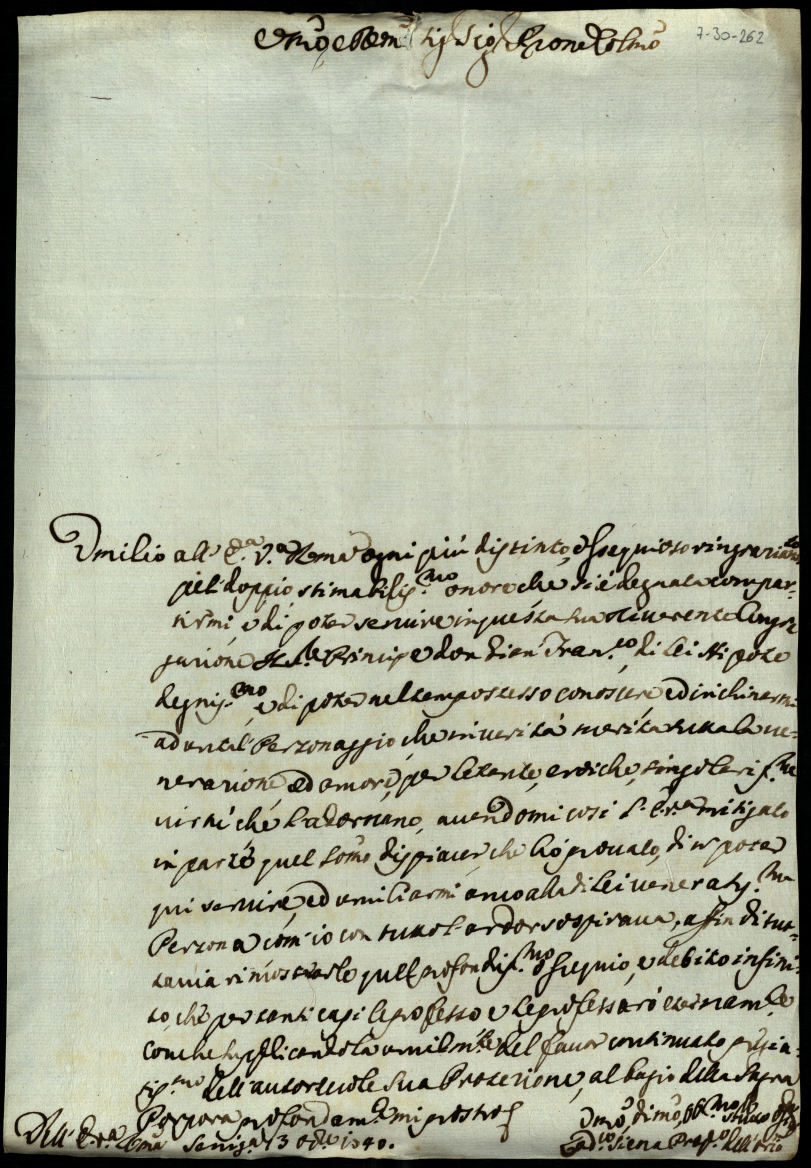 Emo e Rmo Sig Sig Prone Colmo
7-30-262
Umilio all' E.a V.a Rma ogni più distinto, ossequioso ringraziam.to
pel doppio stimabilis.mo onore che si è degnata compar-
tirmi, e di poter servire in questa sua riverente Congre
gazione il Sr. Principe don Gian Fran.co, di Lei Nipote
degnis.mo e di poter nel tempo stesso conoscere ed inchinarmi
ad un tal Personaggio, che in verità merita tutta la ve-
nerazione ed amore, per le tante, eroiche, singolaris.me
virtù che l'adornano, avendomi così l' E.V.a mitigato
in parte quel somo dispiacer, che hò provato, di n poter
qui servire, ed umiliarmi anco alla di Lei veneratis.ma
Persona com'io con tutto l'ardor sospirava, affin di tut-
tavia rimostrarle quel profondis.mo ossequio, e debito infini-
to, che per tanti capi le professo e le professarò eternam.te
con che supplicandola umilm.te del favor continuato
dell'autorevole Sua Protezione, al bagio della Sagra
Porpora profondam.te mi prostro
Dell' E.V.a Rma 13 1740.
Umo, dimo, obl.mo
Siena dell' Orio